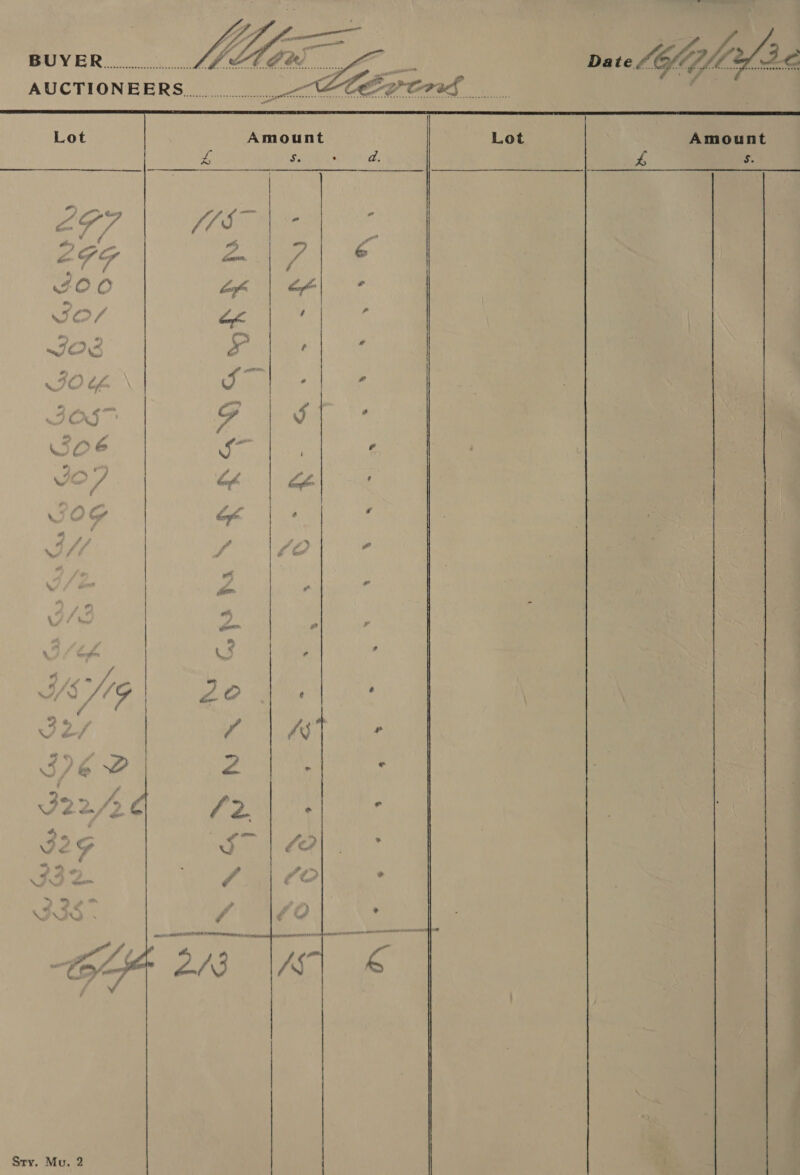 BUYER
AUCTIONEERS Stevens
Date 16/17/12/30
Lot Amount Lot Amount
£ s. d. £ s.
297 115 - -
299 2 7 6
300 4 4 -
301 4 - -
303 8 - -
304 5 - -
305 9 5 -
306 5 - -
307 4 4 -
309 4 - -
311 1 10 -
312 2 - -
313 2 - -
314 3 - -
315/19 20 - -
321 1 15 -
2 - -
322/26 12 - -
329 5 10 -
332 1 10 -
335 1 10 -
213 15 6
Sty. Mu. 2